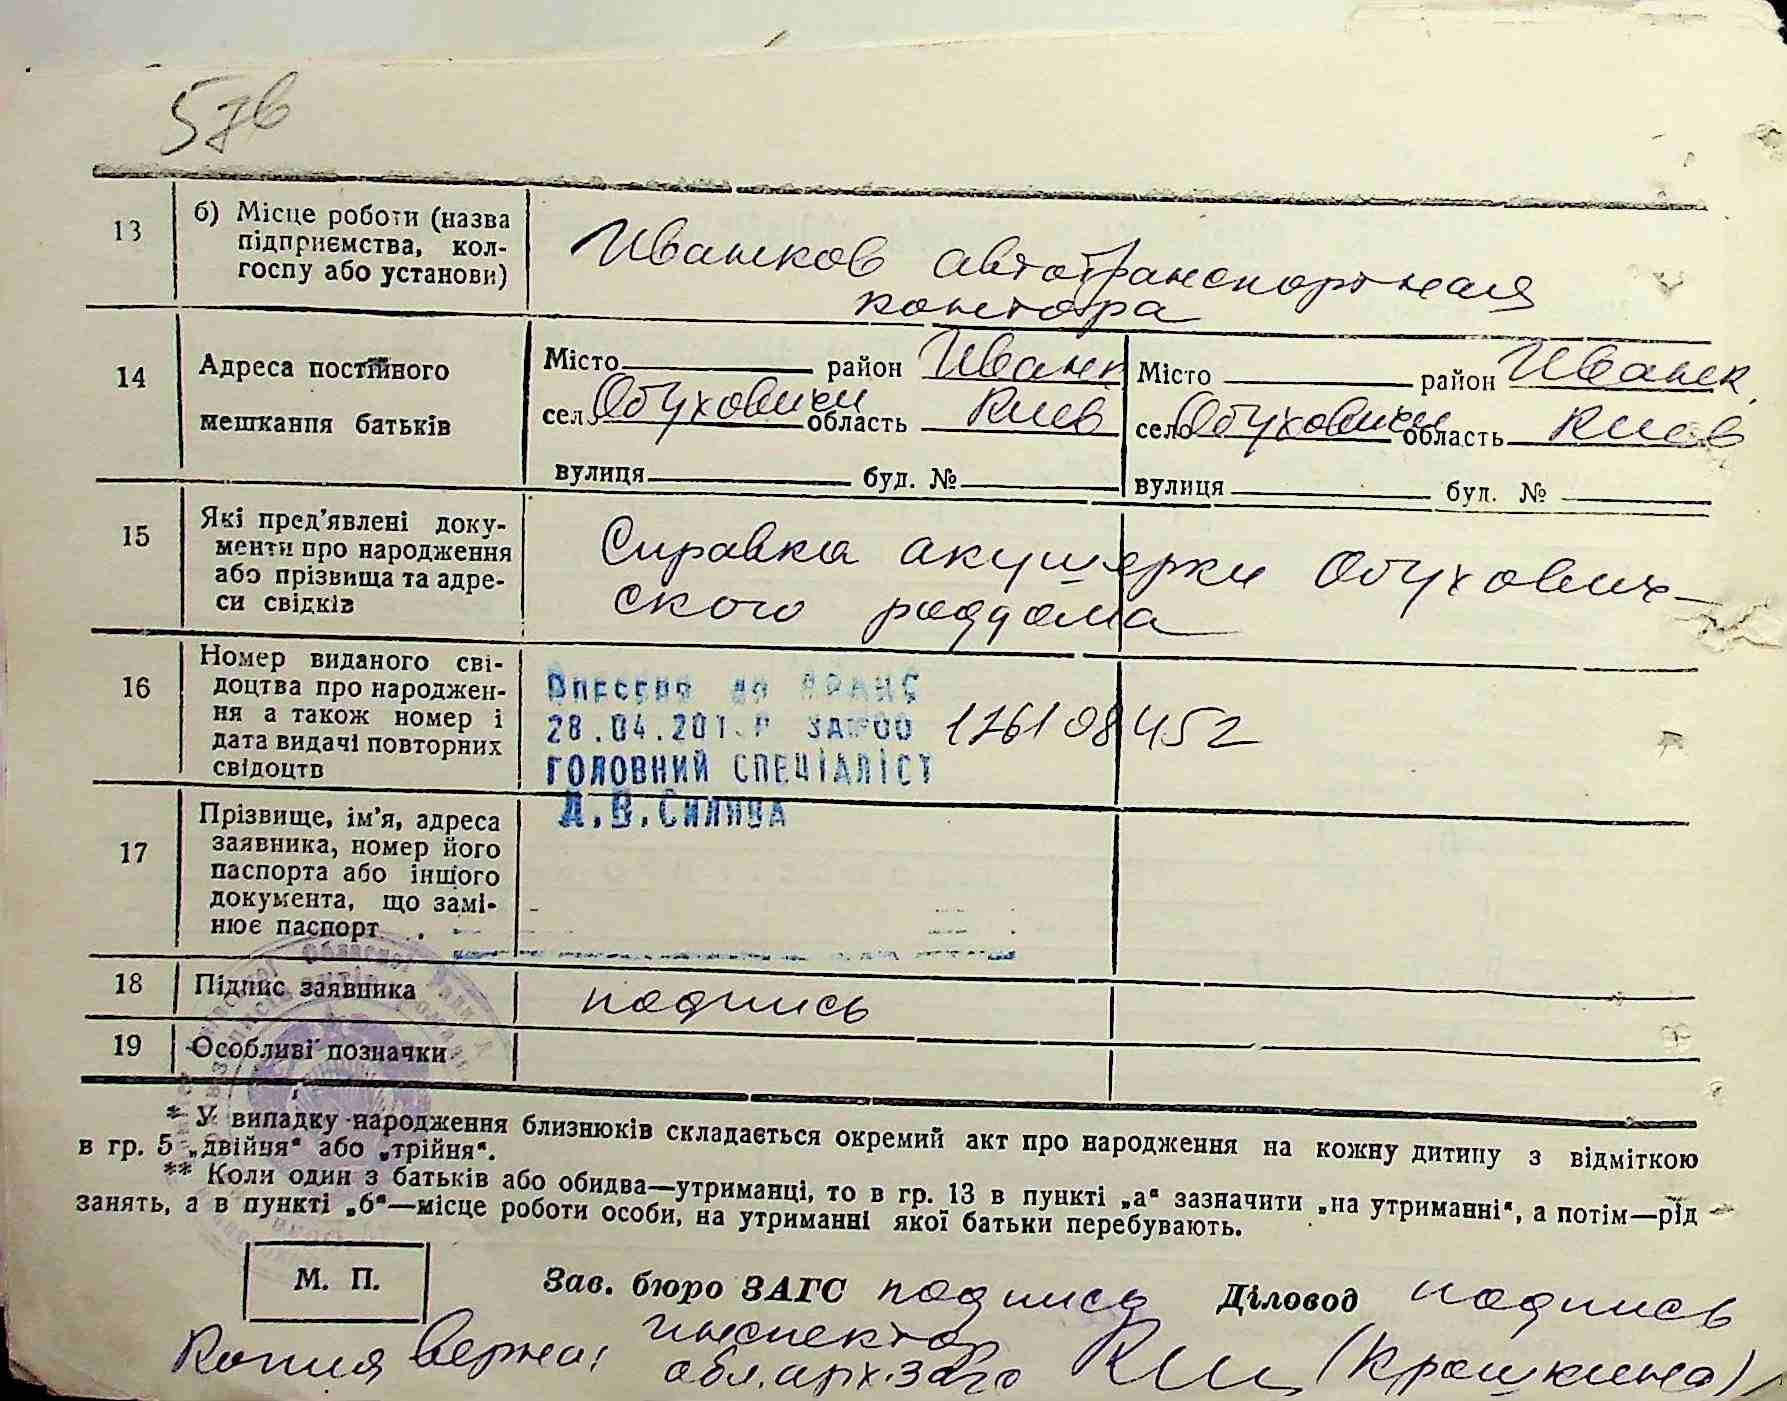 57в
13
б) Місце роботи (назва
підприємства, кол-
госпу або установи)
Иванков автотранспортная
контора
14
Адреса постійного
мешкання батьків
Місто район Иванк
село Обуховичи область Киев
вулиця буд. №
Місто район Иванк.
село Обуховичи область Киев
вулиця буд. №
15
Які пред'явлені доку-
менти про народження
або прізвища та адре-
си свідків
Справка акушерки Обухович-
ского роддома
16
Номер виданого сві-
доцтва про народжен-
ня а також номер і
дата видачі повторних
свідоцтв
Внесено до ДРАЦС
28.04.201
ГОЛОВНИЙ СПЕЦІАЛІСТ
126108452
17
Прізвище, ім'я, адреса
заявника, номер його
паспорта або іншого
документа, що замі-
нює паспорт
18
Підпис заявника
подпись
19
Особливі позначки
* У випадку народження близнюків складається окремий акт про народження на кожну дитину з відміткою
в гр. 5 „двійня“ або „трійня“.
** Коли один з батьків або обидва—утриманці, то в гр. 13 в пункті „а“ зазначити „на утриманні“, а потім—рід
занять, а в пункті „б“—місце роботи особи, на утриманні якої батьки перебувають.
М. П.
Зав. бюро ЗАГС подпись Діловод подпись
Копия верна: инспектор
обл.арх.загс (Крашкина)